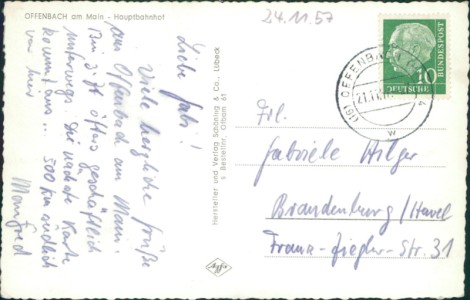 OFFENBACH am Main - Hauptbahnhof
24.11.57
Liebe Gabi!
Viele herzliche Grüße
aus Offenbach am Main!
Bin z. Zt. öfters geschäftlich
unterwegs. Die nächste Karte
kommt aus ... 500 km südlich
von hier
Manfred
Hersteller und Verlag Schöning & Co., Lübeck
Bestellnr. Ofbam. 61
(16) OFFENBACH
21.11.
w
10
DEUTSCHE
BUNDESPOST
Frl.
Gabriele Hilger
Brandenburg/Havel
Franz-Ziegler-Str. 31